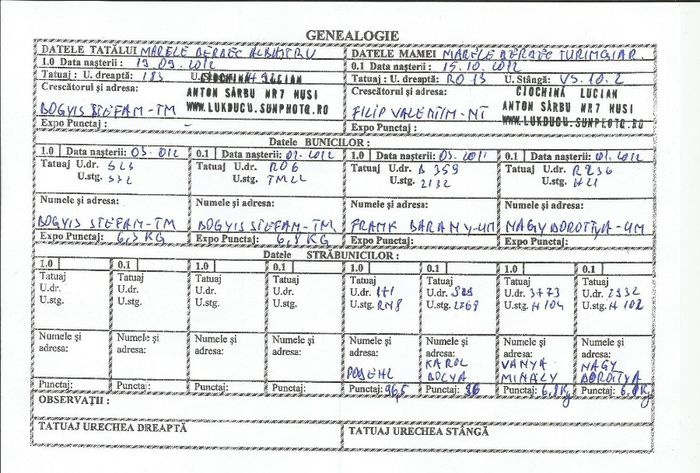 GENEALOGIE
DATELE TATĂLUI MARELE BERBEC ALBASTRU
DATELE MAMEI MARELE BERBEC TURINGIAR
1.0 Data nașterii : 19.09.2012
0.1 Data nașterii : 15.10.2012
Tatuaj : U. dreaptă: 183
Tatuaj : U. dreaptă: RO 13 U. Stângă: V5.10.2
CIOCHINĂ LUCIAN
CIOCHINĂ LUCIAN
Crescătorul și adresa: ANTON SÂRBU NR7 HUSI
Crescătorul și adresa: ANTON SÂRBU NR7 HUSI
BOGYIS STEFAM-TM WWW.LUKDUCU.SUNPHOTO.RO
FILIP VALENTIM-NT WWW.LUKDUCU.SUNPHOTO.RO
Expo Punctaj :
Expo Punctaj :
Datele BUNICILOR :
1.0 Data nașterii: 03.2012
0.1 Data nașterii: 02.2012
1.0 Data nașterii: 03.2011
0.1 Data nașterii: 01.2012
Tatuaj U.dr. 523
U.stg. 532
Tatuaj U.dr. RO6
U.stg. TM22
Tatuaj U.dr. B 359
U.stg. 2132
Tatuaj U.dr. R236
U.stg. H21
Numele și adresa:
Numele și adresa:
Numele și adresa:
Numele și adresa:
BOGYIS STEFAM-TM
BOGYIS STEFAM-TM
FRAMK BARAMY-UM
MAGY DOROTTYA-UM
Expo Punctaj: 6,5 KG
Expo Punctaj: 6,8 KG
Expo Punctaj:
Expo Punctaj:
Datele STRĂBUNICILOR :
1.0 0.1 1.0 0.1 1.0 0.1 1.0 0.1
Tatuaj Tatuaj Tatuaj Tatuaj Tatuaj Tatuaj Tatuaj Tatuaj
U.dr. U.dr. U.dr. U.dr. U.dr. U.dr. U.dr. 3773 U.dr. 2932
U.stg. U.stg. U.stg. U.stg. U.stg. RM8 U.stg. 2268 U.stg. H 104 U.stg. H 102
Numele și adresa: Numele și adresa: Numele și adresa: Numele și adresa: Numele și adresa: Numele și adresa: Numele și adresa: Numele și adresa:
PODEHL
KAROL BOLYA
VANYA MIHALY
NAGY DOROTTYA
Punctaj: Punctaj: Punctaj: Punctaj: Punctaj: 96,5 Punctaj: 96 Punctaj: 6,8 Kg Punctaj: 6,8 Kg
OBSERVAȚII :
TATUAJ URECHEA DREAPTĂ
TATUAJ URECHEA STÂNGĂ